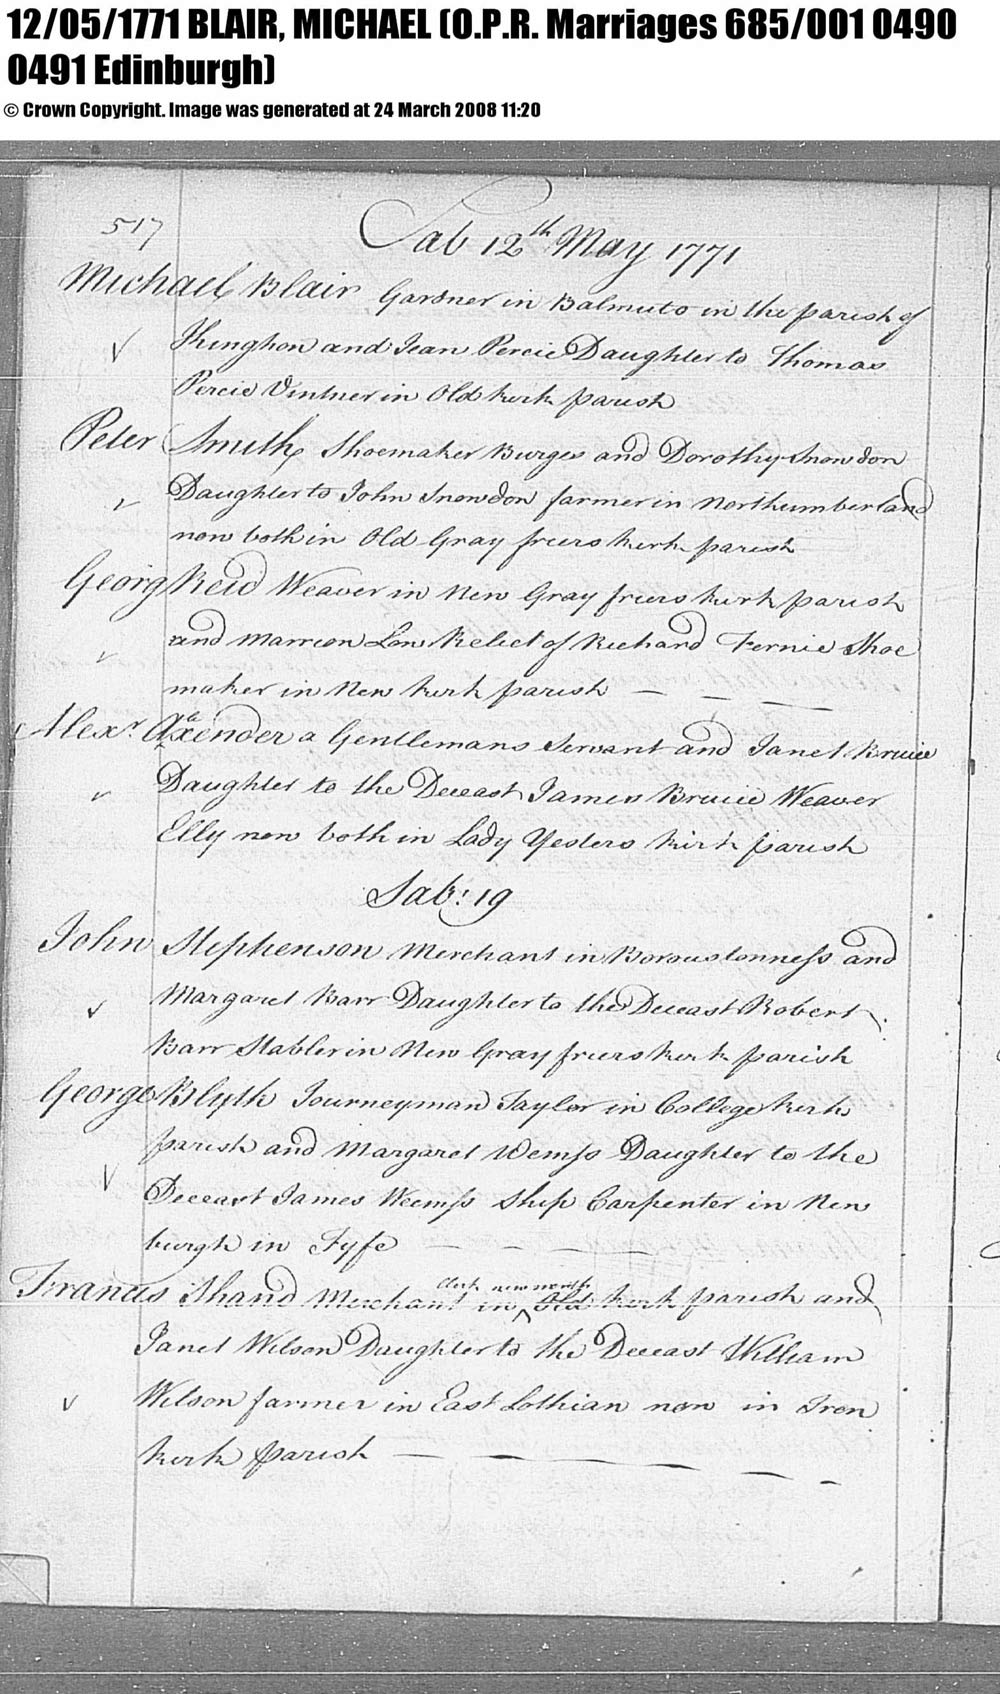 12/05/1771 BLAIR, MICHAEL (O.P.R. Marriages 685/001 0490
0491 Edinburgh)
© Crown Copyright. Image was generated at 24 March 2008 11:20
517
Sab 12th May 1771
Michael Blair Gardner in Balmuto in the parish of
Kinghon and Jean Percie Daughter to Thomas
Percie Vintner in Old kirk parish
Peter Smith Shoemaker Burges and Dorothy Snowdon
Daughter to John Snowdon farmer in Northumberland
now both in Old Gray friers kirk parish
Georg Reid Weaver in New Gray friers kirk parish
and Marrion Low Relict of Richard Fernie Shoe
maker in New kirk parish
Alexr. a Gentlemans Servant and Janet Bruice
Daughter to the Deceast James Bruice Weaver
Elly now both in Lady Yesters kirk parish
Sab: 19
John Stephenson Merchant in Borroustonness and
Margaret Barr Daughter to the Deceast Robert
Barr Stabler in New Gray friers kirk parish
George Blyth Journeyman Taylor in College kirk
parish and Margaret Wemss Daughter to the
Deceast James Weemss Ship Carpenter in New
burgh in Fyfe
Francis Shand Merchant in Old kirk parish and
Janet Wilson Daughter to the Deceast William
Wilson farmer in East Lothian now in Tron
kirk parish